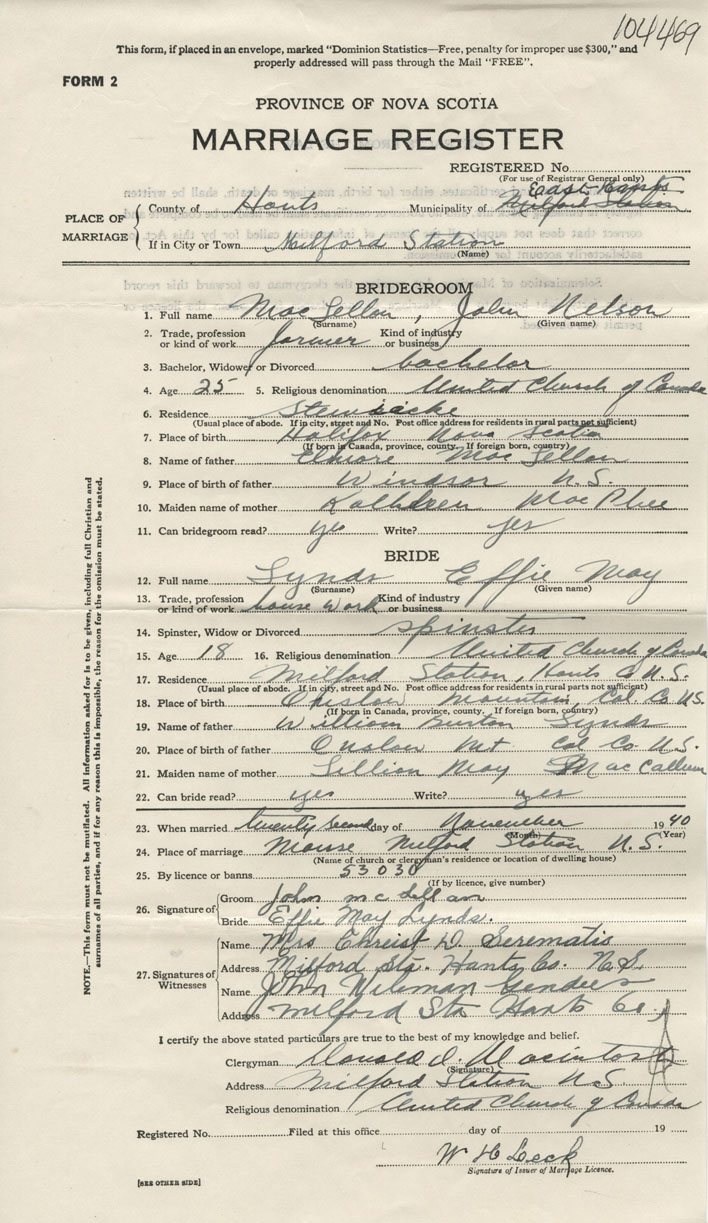 104469
This form, if placed in an envelope, marked "Dominion Statistics—Free, penalty for improper use $300," and
properly addressed will pass through the Mail "FREE".
FORM 2
PROVINCE OF NOVA SCOTIA
MARRIAGE REGISTER
REGISTERED No.
(For use of Registrar General only)
East Hants
PLACE OF MARRIAGE
County of Hants Municipality of Milford Station
If in City or Town Milford Station
(Name)
BRIDEGROOM
1. Full name MacLellan, John Nelson
(Surname) (Given name)
2. Trade, profession or kind of work farmer Kind of industry or business
3. Bachelor, Widower or Divorced bachelor
4. Age 25 5. Religious denomination United Church of Canada
6. Residence Stewiacke
(Usual place of abode. If in city, street and No. Post office address for residents in rural parts not sufficient)
7. Place of birth Halifax Nova Scotia
(If born in Canada, province, county. If foreign born, country)
8. Name of father Elmore MacLellan
9. Place of birth of father Windsor N.S.
10. Maiden name of mother Kathleen MacPhee
11. Can bridegroom read? yes Write? yes
BRIDE
12. Full name Lynds Effie May
(Surname) (Given name)
13. Trade, profession or kind of work house work Kind of industry or business
14. Spinster, Widow or Divorced spinster
15. Age 18 16. Religious denomination United Church of Canada
17. Residence Milford Station, Hants Co N.S.
(Usual place of abode. If in city, street and No. Post office address for residents in rural parts not sufficient)
18. Place of birth Onslow Mountain, Col. Co N.S.
(If born in Canada, province, county. If foreign born, country)
19. Name of father William Burton Lynds
20. Place of father Onslow Mt Col Co. N.S.
21. Maiden name of mother Lillian May MacCallum
22. Can bride read? yes Write? yes
23. When married twenty second day of November 1940
(Month) (Year)
24. Place of marriage Manse Milford Station N.S.
(Name of church or clergyman's residence or location of dwelling house)
25. By licence or banns 53030
(If by licence, give number)
26. Signature of Groom John McLellan
Bride Effie May Lynds.
27. Signatures of Witnesses
Name Mrs Chreist D. Serematis
Address Milford Sta. Hants Co. N.S.
Name John
Address Milford Sta Hants Co.
I certify the above stated particulars are true to the best of my knowledge and belief.
Clergyman Donald D. Macintosh
(Signature)
Address Milford Station N.S
Religious denomination United Church of Canada
Registered No. Filed at this office day of 19
W H Leck
Signature of Issuer of Marriage Licence.
[SEE OTHER SIDE]
NOTE.—This form must not be mutilated. All information asked for is to be given, including full Christian and
surnames of all parties, and if for any reason this is impossible, the reason for the omission must be stated.